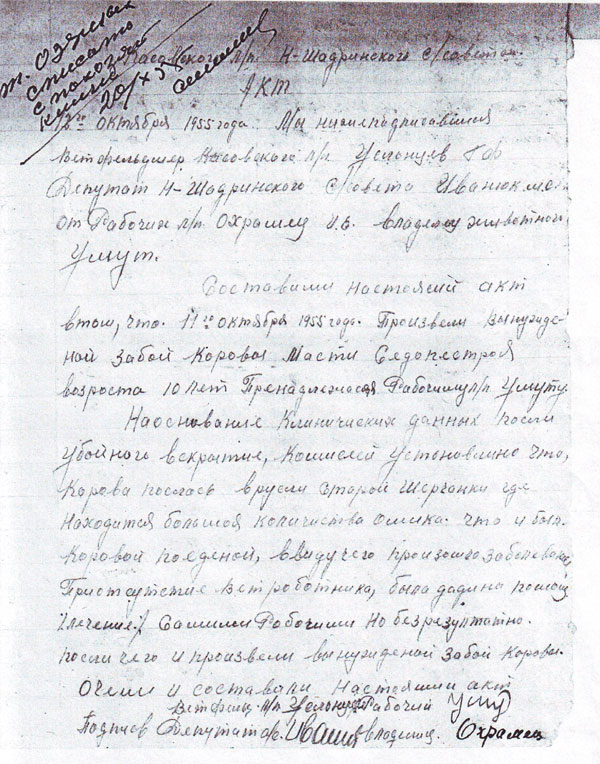 т. Озерных
списать
с похозяй
книги
20/X 55
Касовского л/п. Н-Шадринского с/совета.
Акт
12го октября 1955 года. Мы нижеподписавшия
Ветфельдшер Касовского л/п.
Депутат Н-Шадринского с/совета Иванюк
от Рабочих л/п. Охрамец И.Е. владелец животного
Умут.
Составили настоясий акт
втом, что. 11го октября 1955 года. Произвели вынужде-
ной забой Коровы Масти Седопестрой
возроста 10 лет Пренадлежасая Рабочиму л/п. Умуту
Наоснование Клиничиских данных посли
убойного вскрытие, Комиссией установлино что,
Корова послась вруели старой Шерчанки где
находится большоя количиства омика. что и был
Коровой поеденой, ввидучего произошло заболевание
Приотсутствие ветроботника, была дадина помощ
/лечение/ Самими Рабочими но безрезултатно.
посли чего и произвели вынужденой забой Коровы.
Очем и составали настояший акт
Ветфельд. л/п. Рабочий Умут
Подпись Депутат с/с. владелец. Охрамец